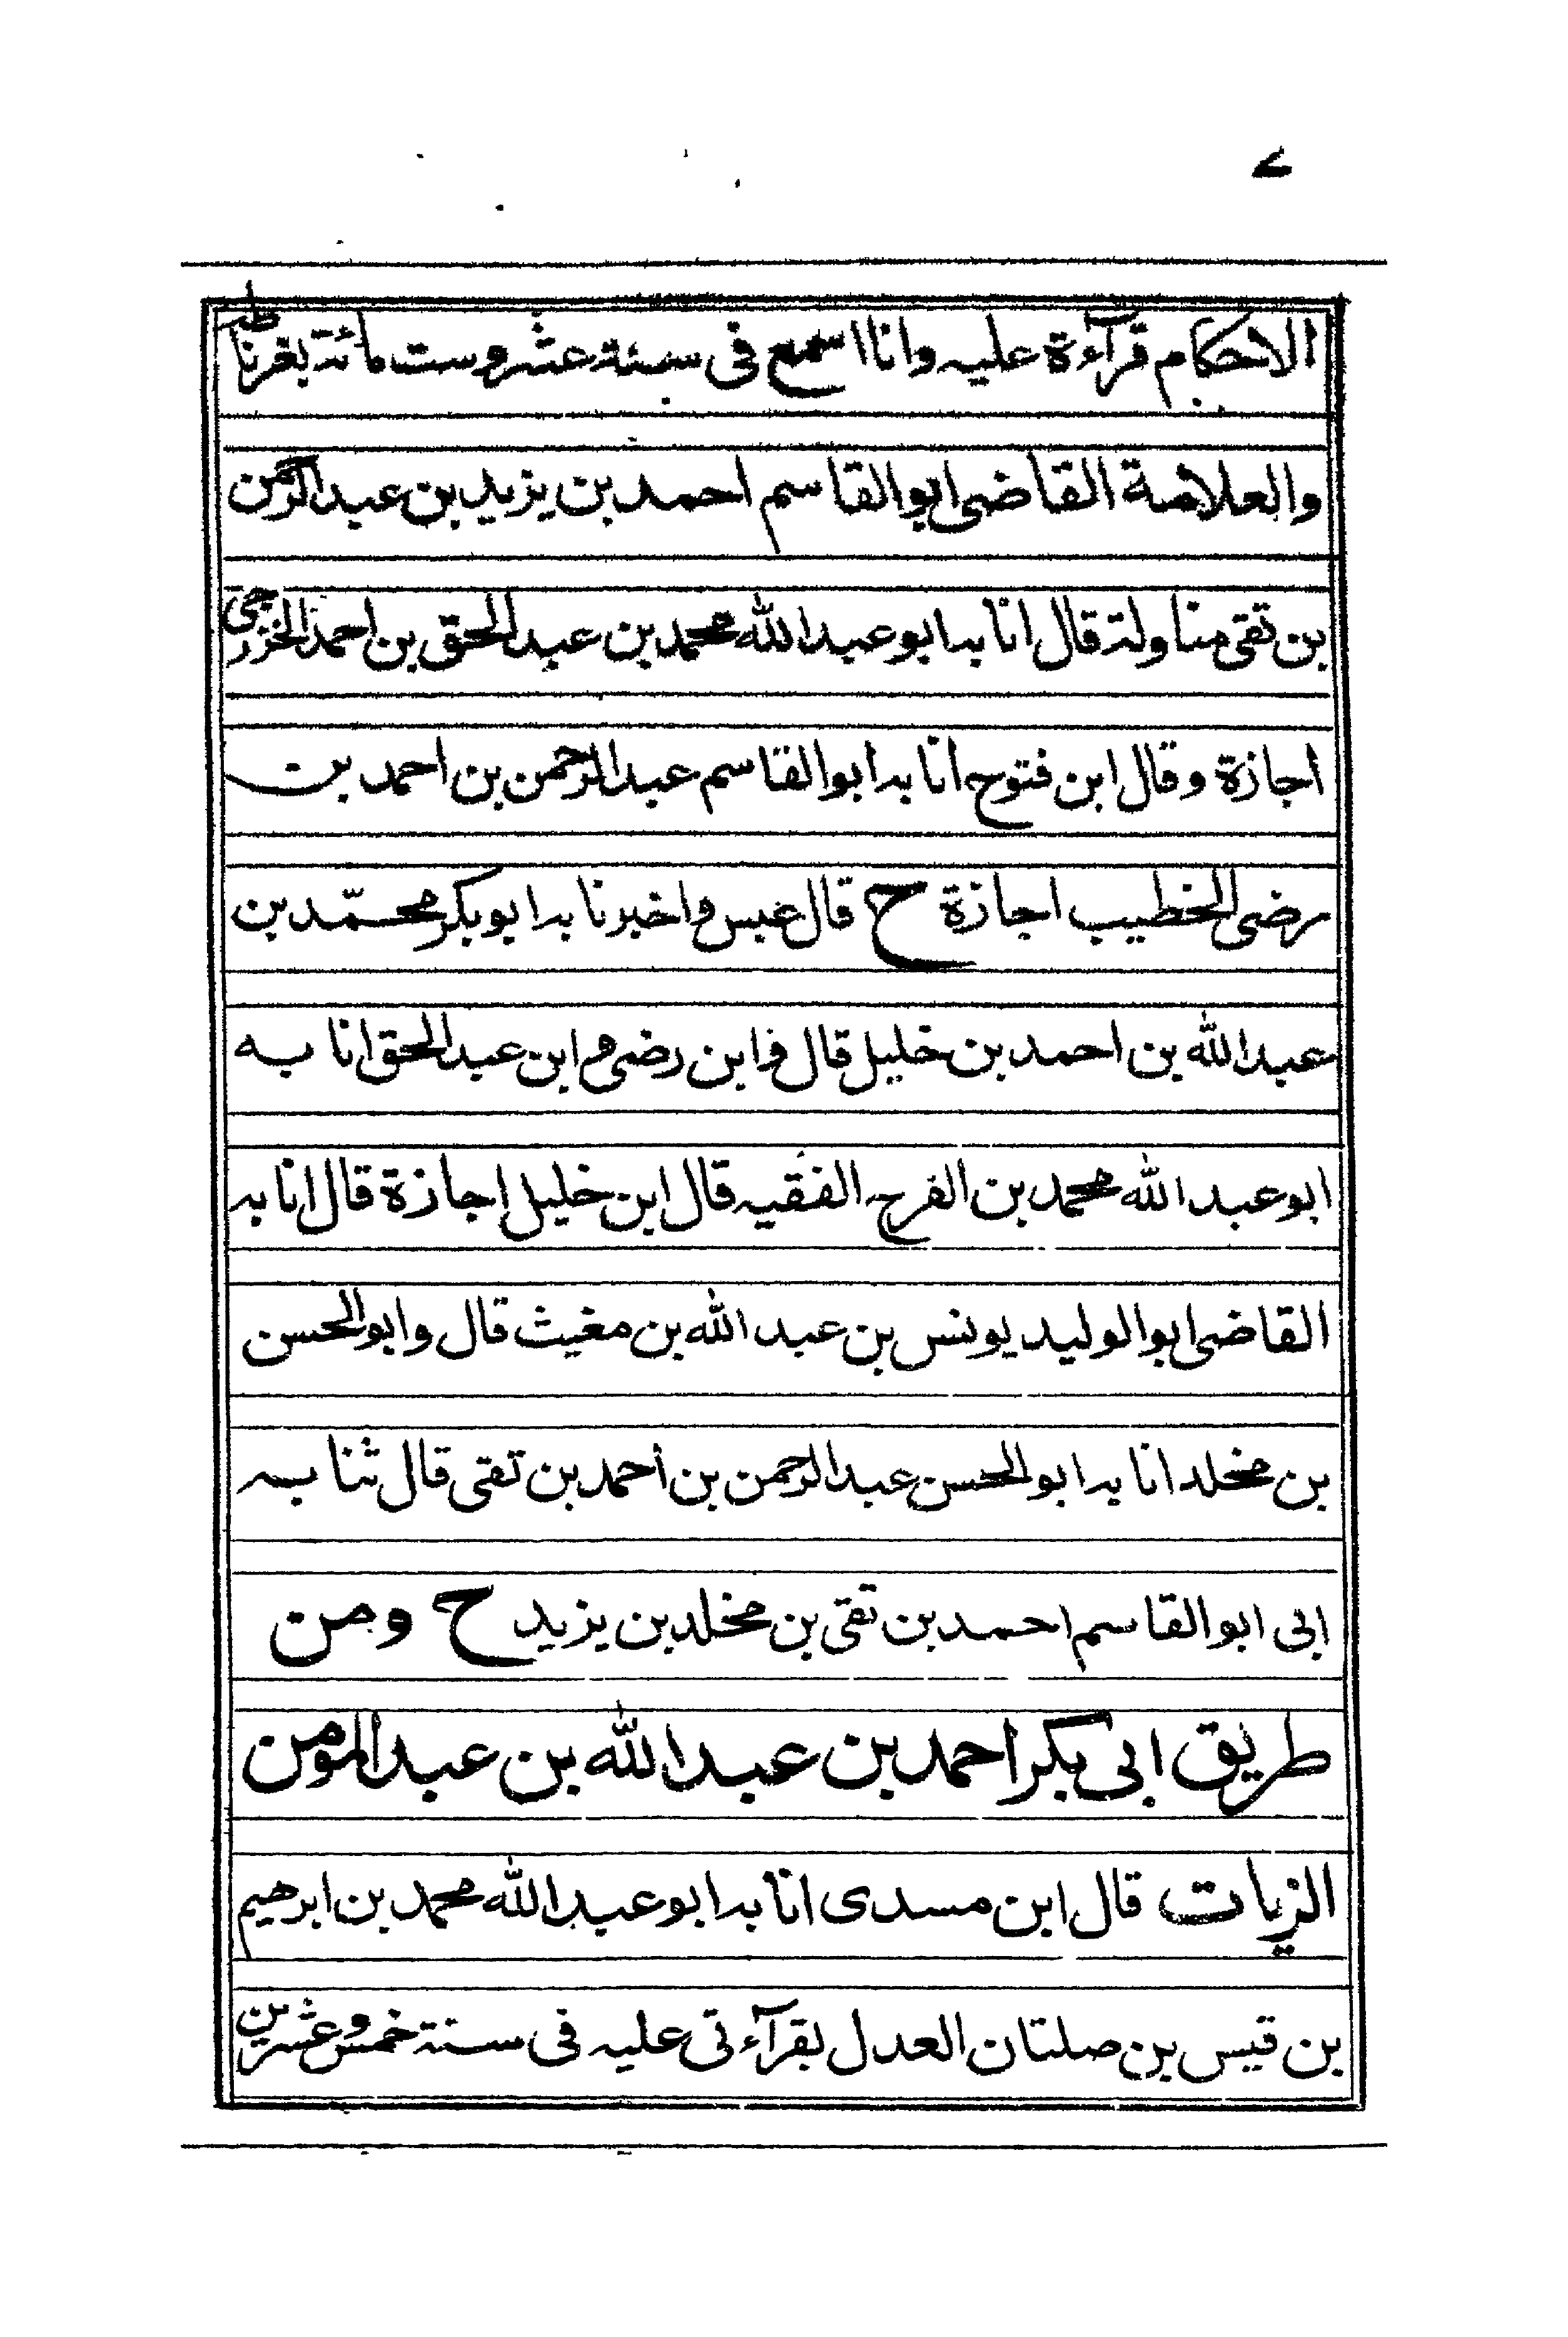 الاحكام قرآءة عليه وانا اسمع فى سبنة عشر وست مائة بغرناطه
والعلامة القاضى ابو القاسم احمد بن يزيد بن عبد الرحمن
بن تقى مناولة قال انا به ابو عبد الله محمد بن عبد الحق بن احمد الخزرجى
اجازة وقال ابن فتوح انا به ابو القاسم عبد الرحمن بن احمد بن
رضى الخطيب اجازة ح قال عبس واخبرنا به ابو بكر محمّد بن
عبد الله بن احمد بن خليل قال وابن رضى وابن عبد الحق انا به
ابو عبد الله محمد بن الفرح الفقيه قال ابن خليل اجازة قال انا به
القاضى ابو الوليد يونس بن عبد الله بن مغيث قال وابو الحسن
بن مخلد انا به ابو الحسن عبد الرحمن بن أحمد بن تقى قال ثنا به
ابى ابو القاسم احمد بن تقى بن مخلد بن يزيد ح ومن
طريق ابى بكر احمد بن عبد الله بن عبد المومن
الزيات قال ابن مسدى انا به ابو عبد الله محمد بن ابرهيم
بن قيس بن صلتان العدل بقرآءتى عليه فى سنة خمس وعشرين